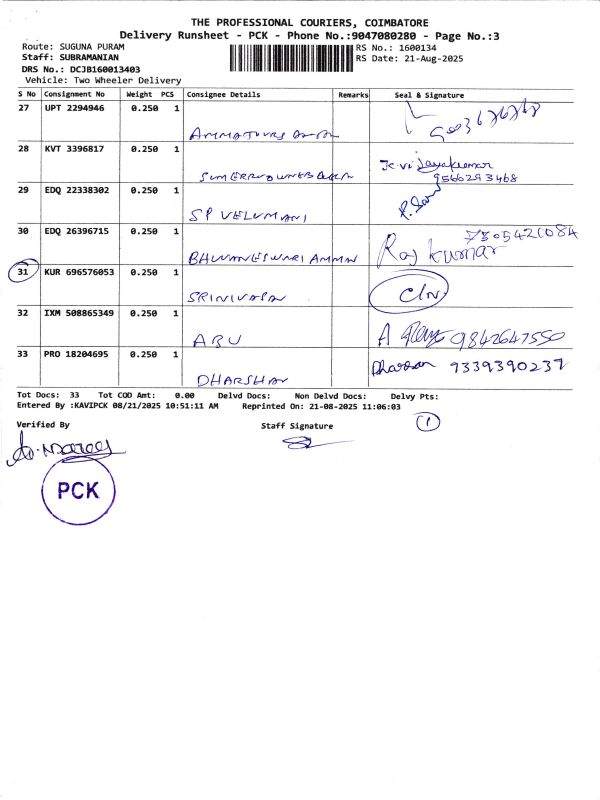 THE PROFESSIONAL COURIERS, COIMBATORE
Delivery Runsheet - PCK - Phone No.:9047080280 - Page No.:3
Route: SUGUNA PURAM RS No.: 1600134
Staff: SUBRAMANIAN RS Date: 21-Aug-2025
DRS No.: DCJB160013403
Vehicle: Two Wheeler Delivery
S No Consignment No Weight PCS Consignee Details Remarks Seal & Signature
27 UPT 2294946 0.250 1
28 KVT 3396817 0.250 1 K. Vijayakumar
9566293468
29 EDQ 22338302 0.250 1
SP VELUMANI
30 EDQ 26396715 0.250 1 7305421084
BHUVANESWARI AMMAN Raj kumar
31 KUR 696576053 0.250 1
SRINIVASA
32 IXM 508865349 0.250 1
ABU A 9842647550
33 PRO 18204695 0.250 1 Dharshan 9339390237
DHARSHAN
Tot Docs: 33 Tot COD Amt: 0.00 Delvd Docs: Non Delvd Docs: Delvy Pts:
Entered By :KAVIPCK 08/21/2025 10:51:11 AM Reprinted On: 21-08-2025 11:06:03
Verified By Staff Signature 1
PCK